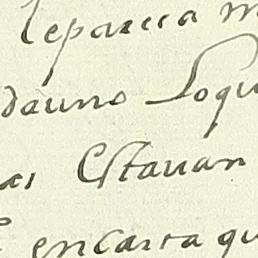 le parecia m
dauno Loqu
as Estauan
encarta qu